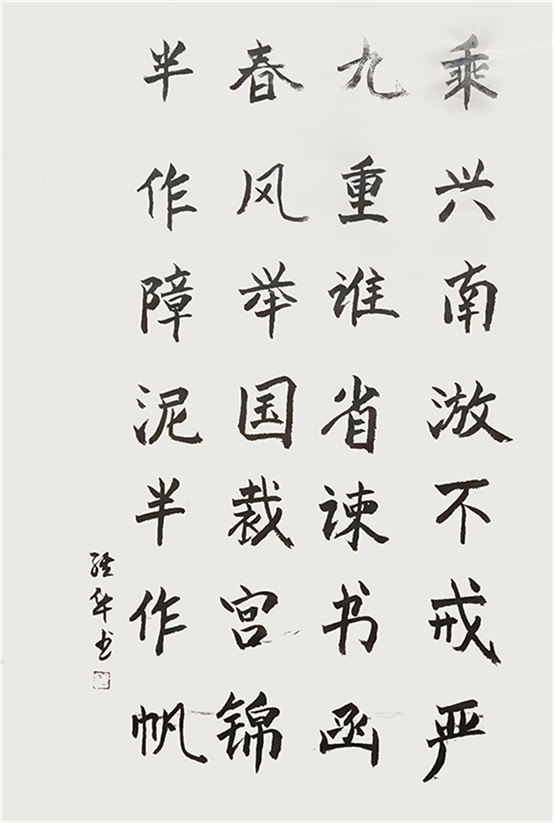 乘兴南游不戒严
九重谁省谏书函
春风举国裁宫锦
半作障泥半作帆
书